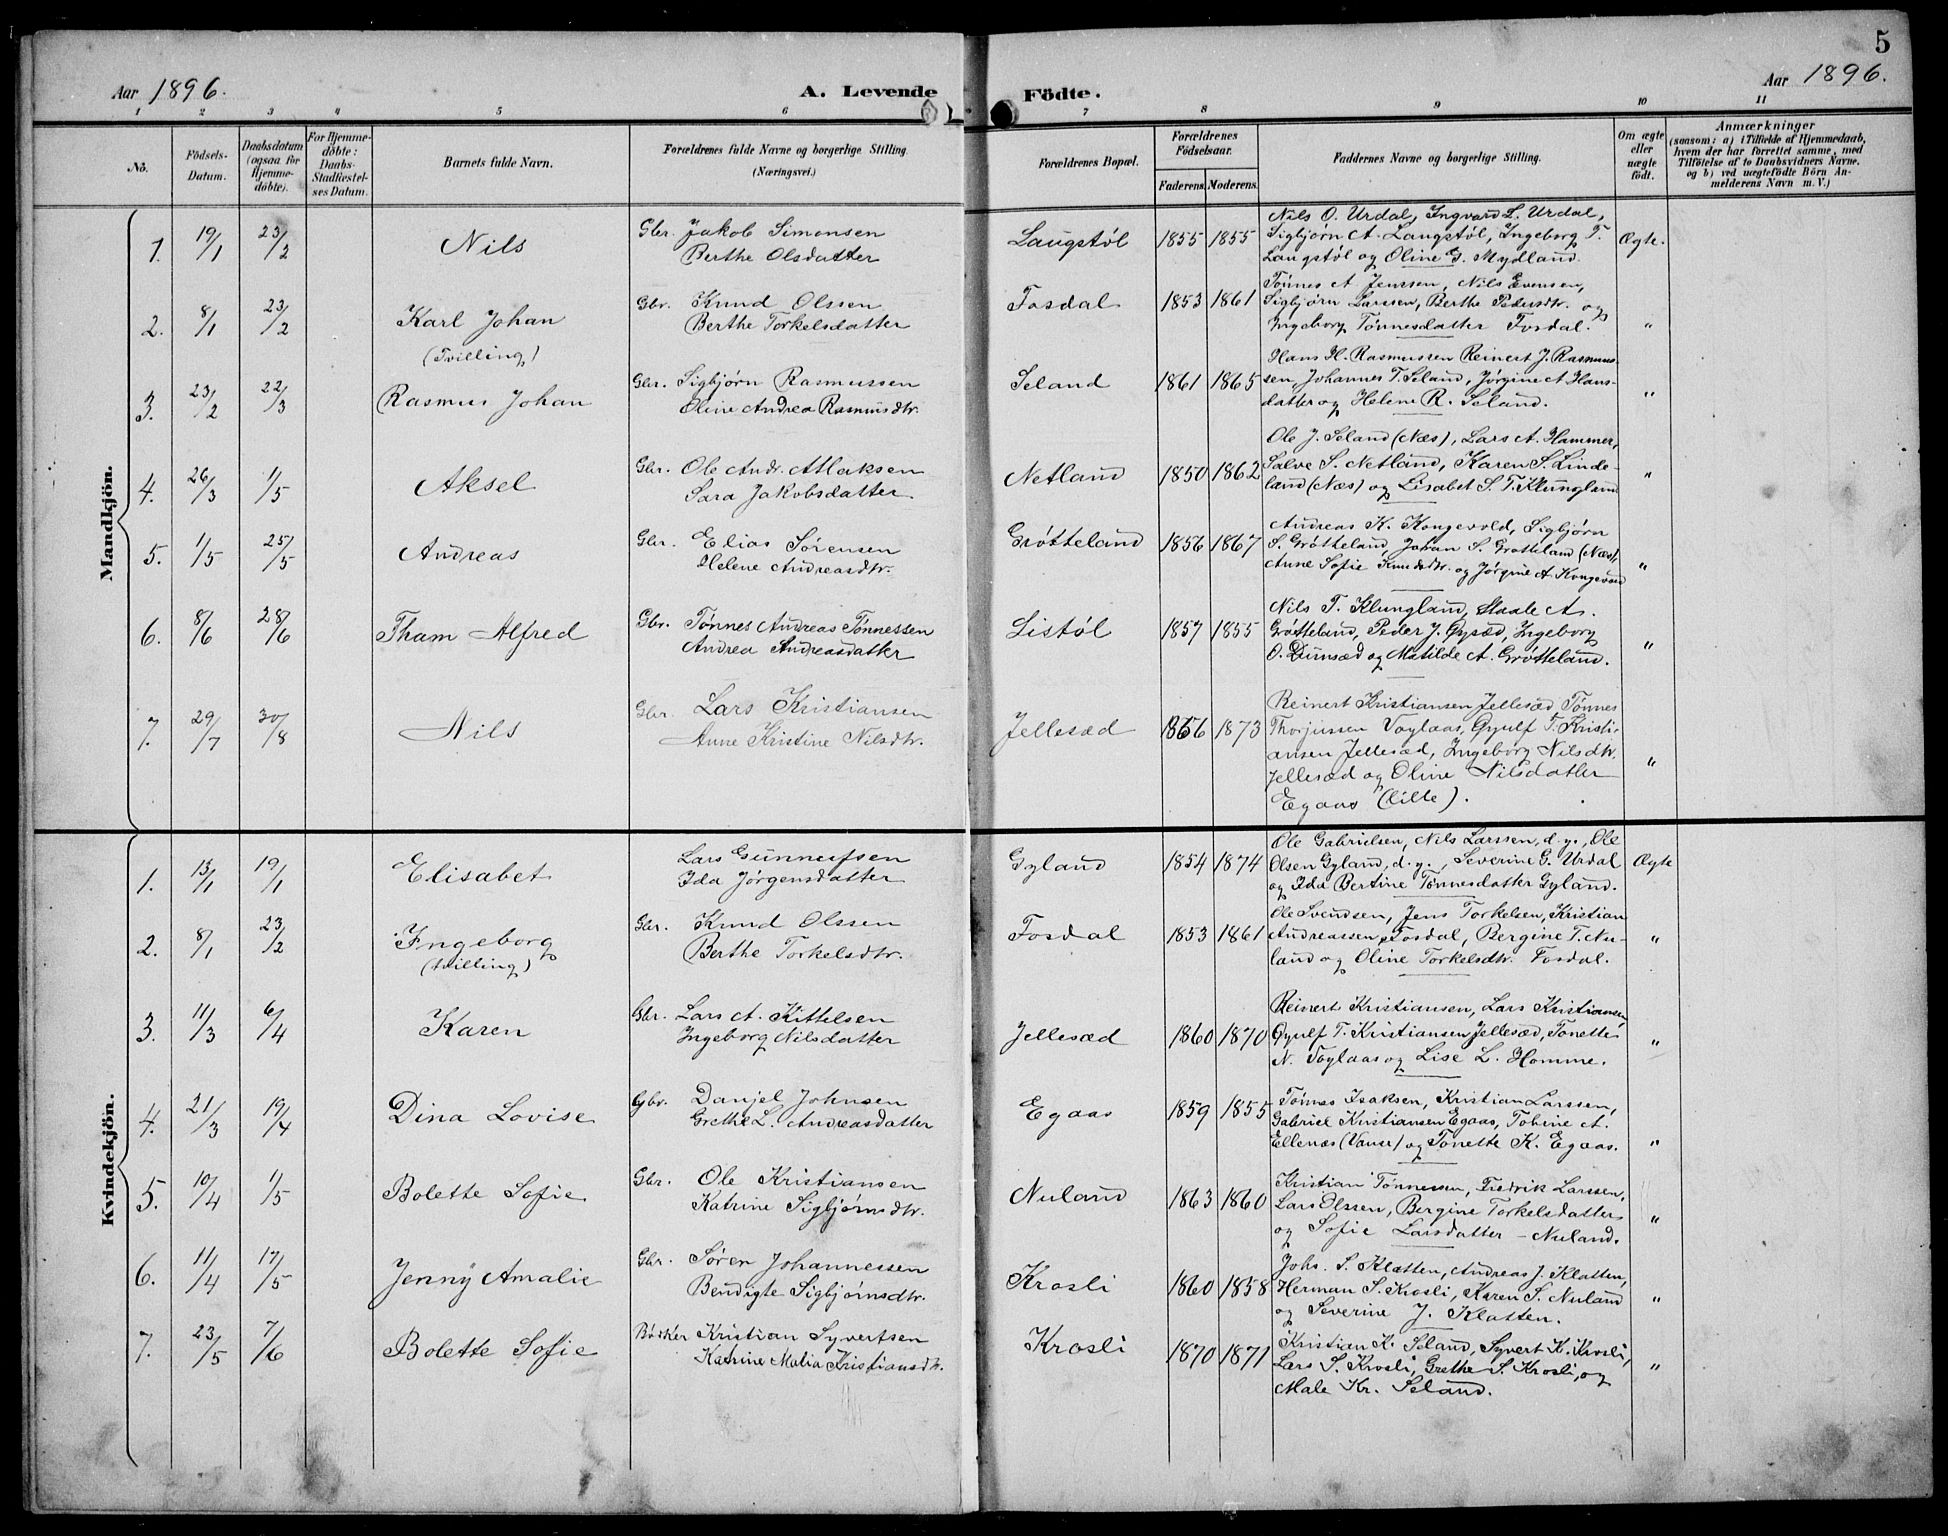 5
Aar 1896.
A. Levende Födte.
Aar 1896.
1 2 3 4 5 6 7 8 9 10 11
No.
Födsels-Datum.
Daabsdatum (ogsaa for Hjemme-döbte).
For Hjemme-döbte: Daabs-Stadfæstel-ses Datum.
Barnets fulde Navn.
Forældrenes fulde Navne og borgerlige Stilling. (Næringsvei.)
Forældrenes Bopæl.
Forældrenes Födselsaar.
Faderens. Moderens.
Faddernes Navne og borgerlige Stilling.
Om ægte eller uægte födt.
Anmærkninger
(saasom: a) i Tilfælde af Hjemmedaab, hvem der har forrettet samme, med Tilföielse af to Daabsvidners Navne. og b) ved uægtefödte Börn An-melderens Navn m. V.)
Mandkjön.
1. 19/1 23/2 Nils Gbr. Jakob Simonsen
Berthe Olsdatter
Laugstøl 1855 1855
Nils O. Urdal, Ingvard L. Urdal,
Sigbjørn A. Laugstøl, Ingeborg T.
Laugstøl og Oline G. Mydland.
Ægte.
2. 8/1 23/2 Karl Johan
(Tvilling)
Gbr. Knud Olssen
Berthe Torkelsdatter
Fosdal 1853 1861
Tønnes A Jenssen, Nils Evensen,
Sigbjørn Larssen, Berthe Pedersdtr. og
Ingeborg Tønnesdatter Fosdal.
"
3. 23/2 22/3 Rasmus Johan
Gbr. Sigbjørn Rasmussen
Oline Andrea Rasmusdtr.
Seland 1861 1865
Hans H. Rasmussen Reinert J. Rasmus-
sen, Johannes T. Seland, Jørgine A Hans-
datter og Helene R. Seland.
"
4. 26/3 1/5 Aksel
Gbr. Ole Andr. Atlaksen
Sara Jakobsdatter
Netland 1850 1862
Ole J. Seland (Næs), Lars A. Hammer,
Salve S. Netland, Karen S. Linde-
land (Næs) og Lisabet S. T. Klungland
"
5. 1/5 25/5 Andreas
Gbr. Elias Sørensen
Helene Andreasdtr.
Grøtteland 1856 1867
Andreas K. Kongevold, Sigbjørn
S. Grøtteland, Johan S. Grøtteland (Næs),
Anne Sofie Knudsdtr. og Jørgine A. Kongevold
"
6. 8/6 28/6 Tham Alfred
Gbr. Tønnes Andreas Tønnessen
Andrea Andreasdatter
Listøl 1857 1855
Nils T. Klungland, Staale A.
Grøtteland, Peder J. Gysæd, Ingeborg
O. Dunsæd og Matilde A. Grøtteland.
"
7. 29/7 30/8 Nils
Gbr. Lars Kristiansen
Anne Kristine Nilsdtr.
Jellesæd 1866 1873
Reinert Kristiansen Jellesæd Tønnes
Thorjussen Voglaas, Gyulf T. Kristi-
ansen Jellesæd, Ingeborg Nilsdtr.
Jellesæd og Oline Nilsdatter
Egaas (Lille).
"
Kvindekjön.
1. 13/1 19/1 Elisabet
Lars Gunnufsen
Ida Jørgensdatter
Gyland 1854 1874
Ole Gabrielsen, Nils Larssen, d.y., Ole
Olsen Gyland, d.y., Severine G. Urdal
og Ida Bertine Tønnesdatter Gyland.
Ægte
2. 8/1 23/2 Ingeborg
(tvilling)
Gbr. Knud Olssen
Berthe Torkelsdtr.
Fosdal 1853 1861
Ole Svendsen, Jens Torkelsen, Kristian
Andreassen Fosdal, Bergine T. Nu-
land og Oline Torkelsdtr. Fosdal.
"
3. 11/3 6/4 Karen
Gbr. Lars A. Kittelsen
Ingeborg Nilsdatter
Jellesæd 1860 1870
Reinert Kristiansen, Lars Kristiansen,
Gyulf T. Kristiansen Jellesæd, Tonette
N. Voglaas og Lise L. Homme.
"
4. 21/3 19/4 Dina Lovise
Gbr. Danjel Johnsen
Grethe L. Andreasdatter
Egaas 1859 1855
Tønnes Isaksen, Kristian Larssen,
Gabriel Kristiansen Egaas, Tobine A.
Ellenæs (Vanse) og Tonette K. Egaas.
"
5. 10/4 1/5 Bolette Sofie
Gbr. Ole Kristiansen
Katrine Sigbjørnsdtr.
Nuland 1863 1860
Kristian Tønnessen, Fredrik Larssen,
Lars Olssen, Bergine Torkelsdatter
og Sofie Larsdatter - Nuland.
"
6. 11/4 17/5 Jenny Amalie
Gbr. Søren Johannessen
Bendigte Sigbjørnsdtr.
Krosli 1860 1858
Johs. S. Klatten, Andreas J. Klatten,
Herman S. Krosli, Karen S. Nuland
og Severine J. Klatten.
"
7. 23/5 7/6 Bolette Sofie
Bødker Kristian Syvertsen
Katrine Malia Kristiansdtr.
Krosli 1870 1871
Kristian K. Seland, Syvert K. Krosli,
Lars S. Krosli, Grethe S. Krosli, og
Male Kr. Seland.
"